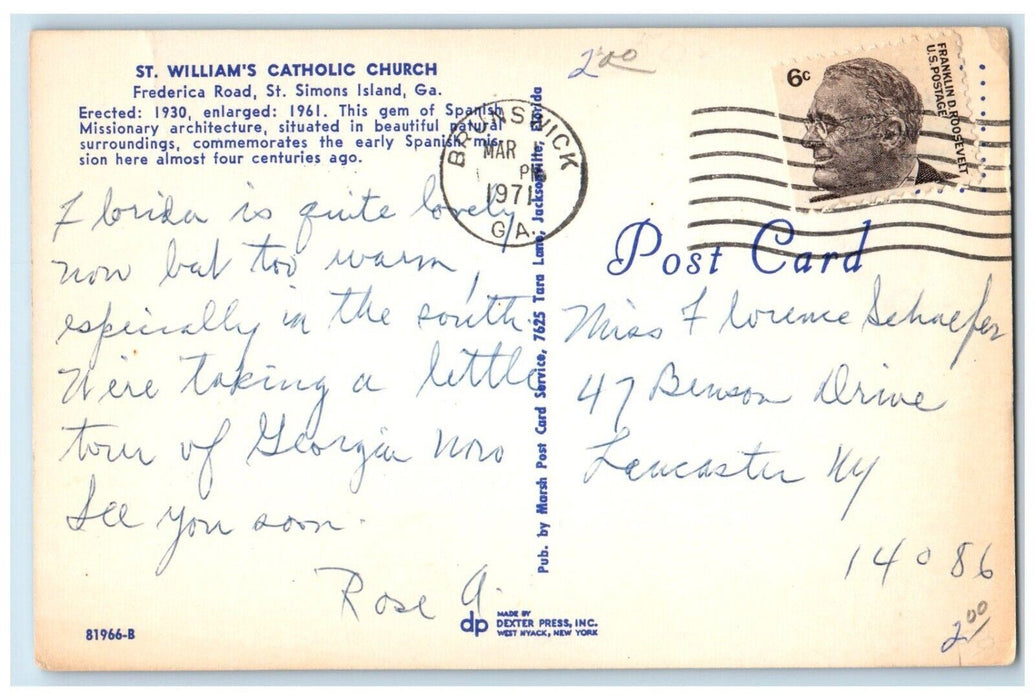 ST. WILLIAM'S CATHOLIC CHURCH
Frederica Road, St. Simons Island, Ga.
Erected: 1930, enlarged: 1961. This gem of Spanish
Missionary architecture, situated in beautiful natural
surroundings, commemorates the early Spanish mis-
sion here almost four centuries ago.
Florida is quite lovely
now but too warm,
espicially in the south.
We're taking a little
tour of Georgia now
See you soon.
Rose A.
81966-B
Pub. by Marsh Post Card Service, 7625 Tara Lane, Jacksonville, Florida
dp
MADE BY
DEXTER PRESS, INC.
WEST NYACK, NEW YORK
2.00
BRUNSWICK
MAR
PM
1971
GA.
6c
FRANKLIN D. ROOSEVELT
U.S. POSTAGE
Post Card
Miss Florence Schaefer
47 Benson Drive
Lancaster NY
14086
2.00